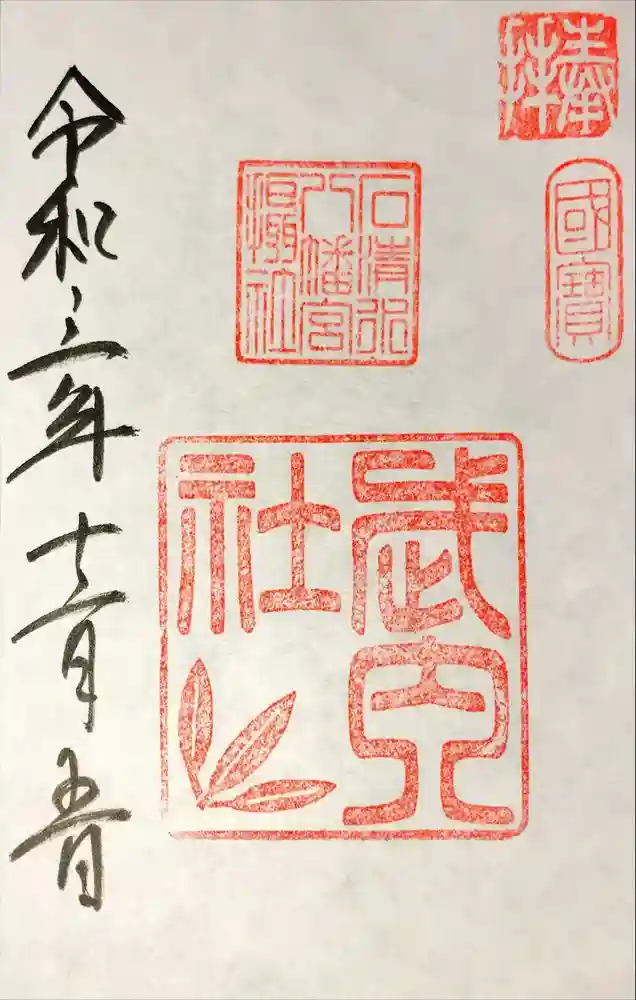 奉拝
國寶
石清水
八幡宮
社
武内
社
令和三年十二月五日